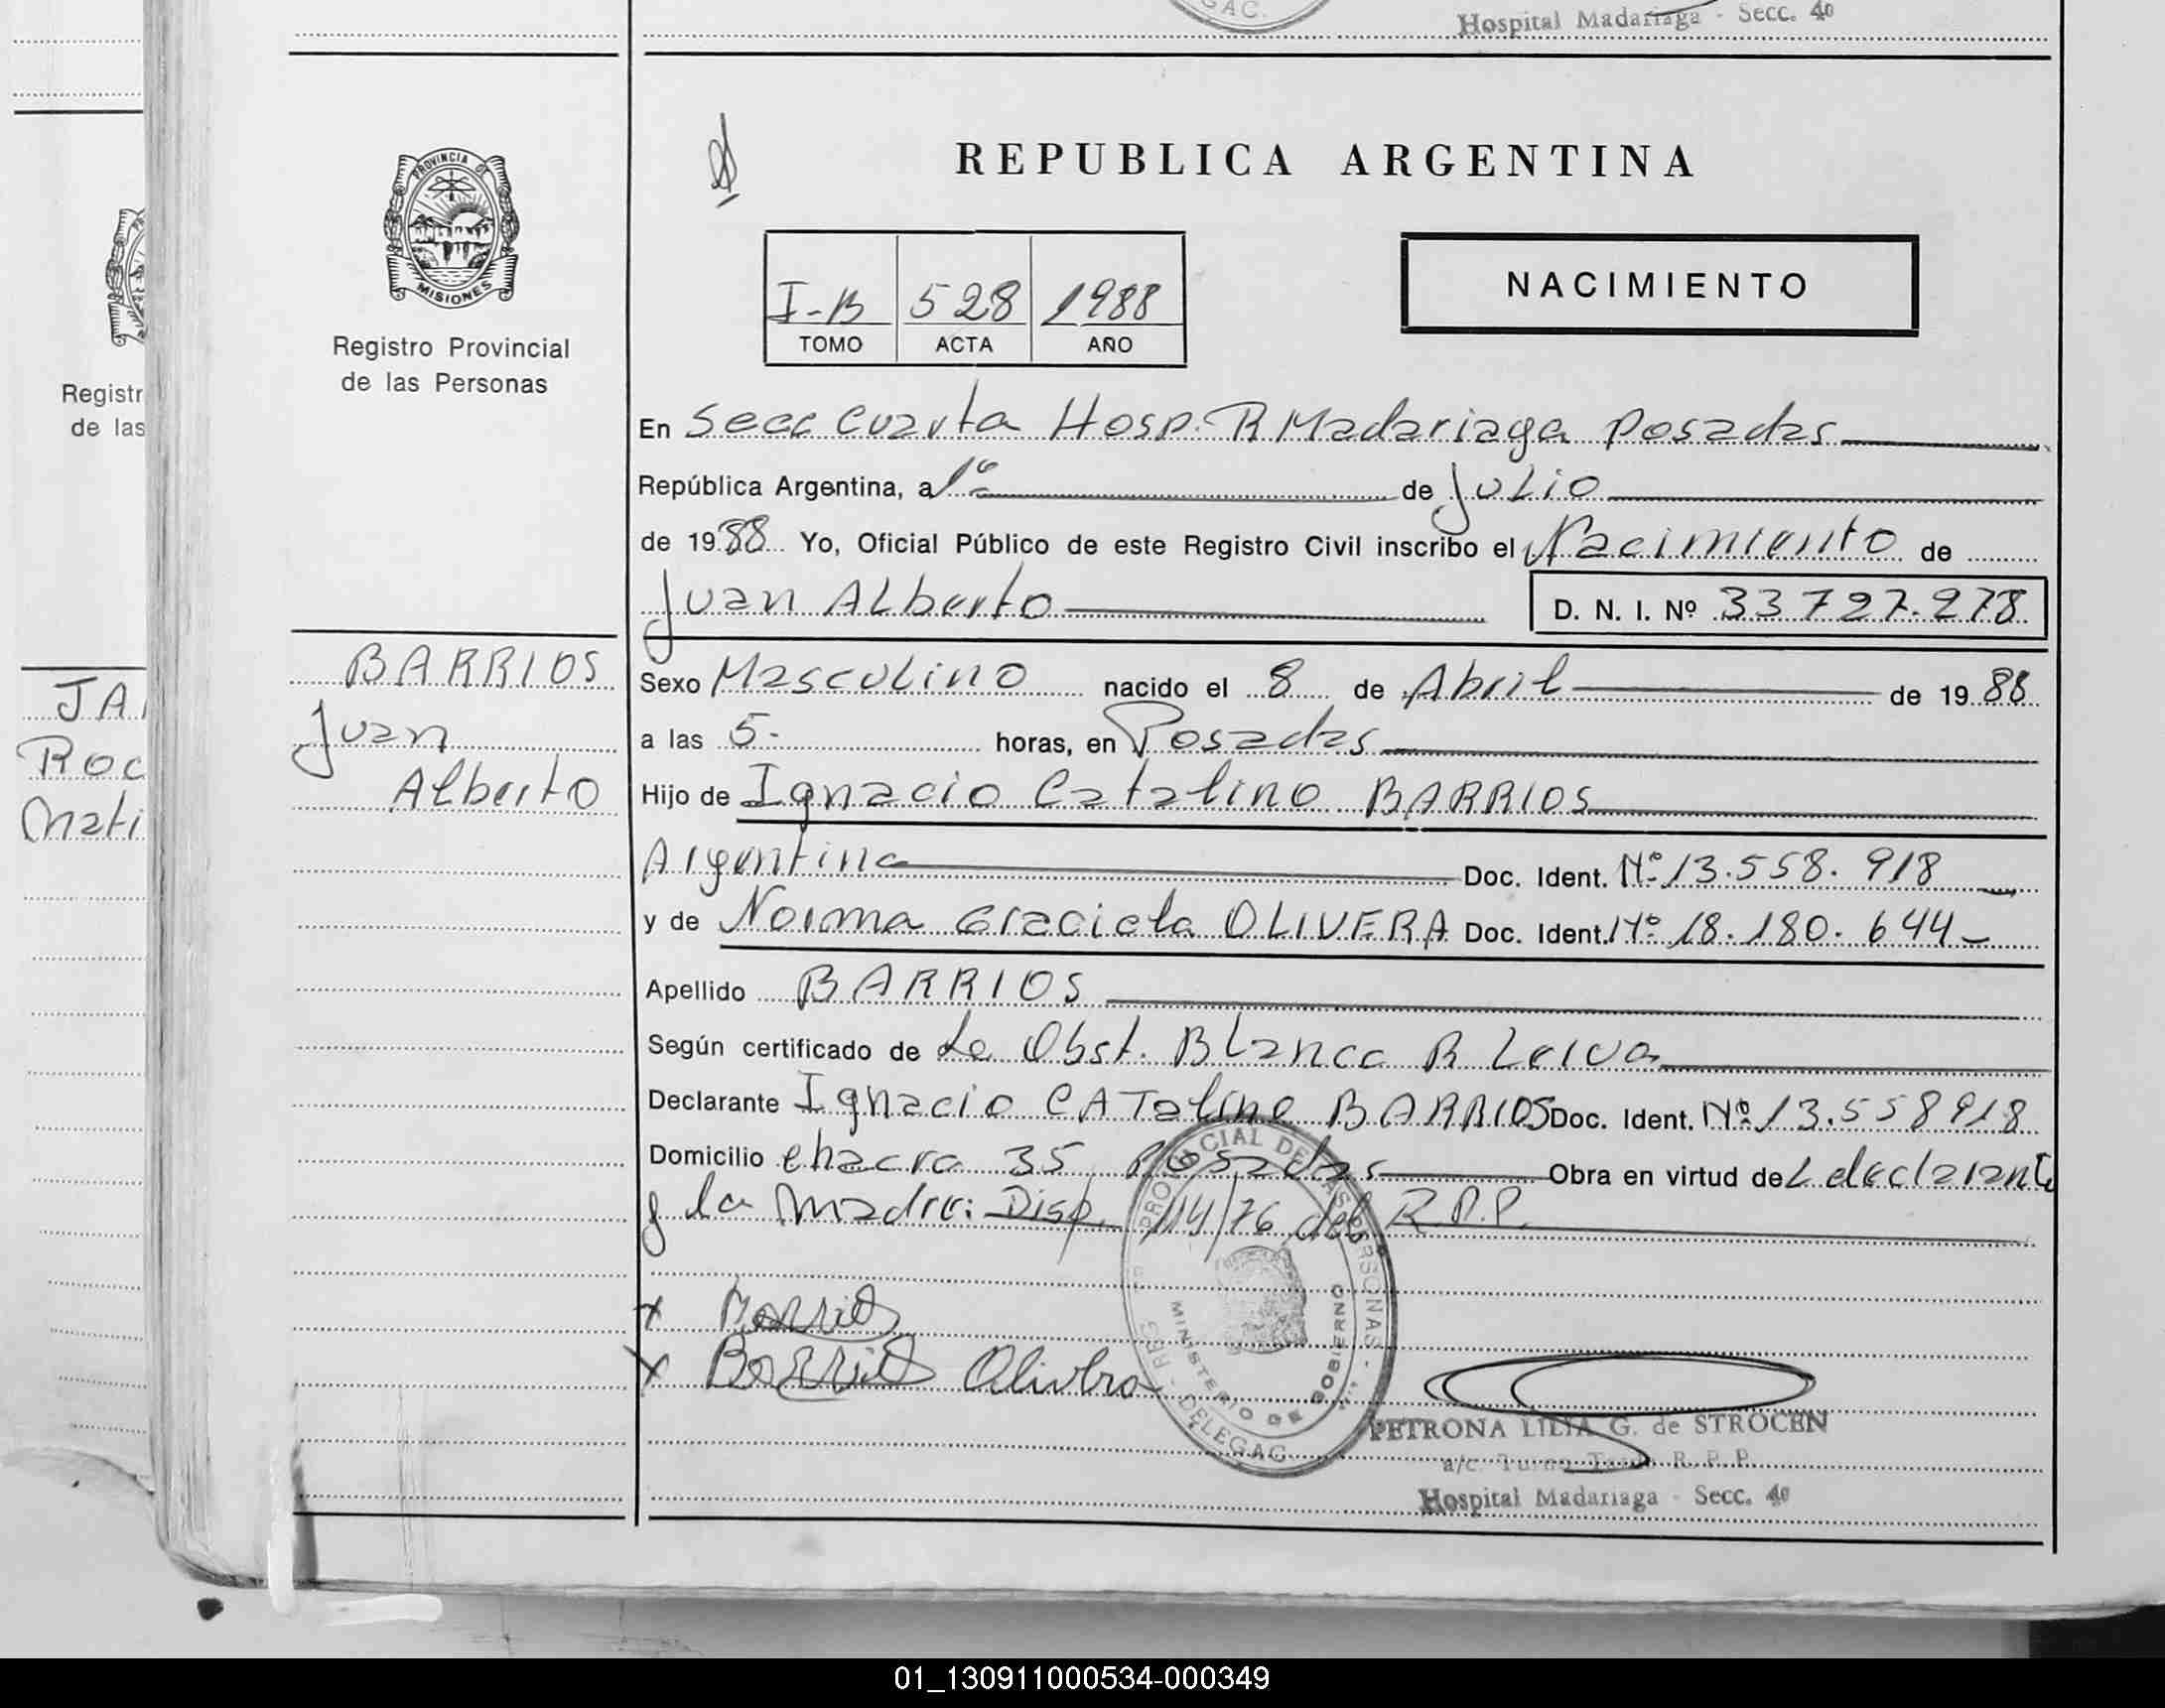 GAC.
Hospital Madariaga - Secc. 4º
PROVINCIA DE
MISIONES
Registro Provincial
de las Personas
Registr
de las
REPUBLICA ARGENTINA
I-B 528 1988
TOMO ACTA AÑO
NACIMIENTO
En Secc Cuarta Hosp. R Madariaga Posadas
República Argentina, a 1º de Julio
de 1988 Yo, Oficial Público de este Registro Civil inscribo el Nacimiento de
Juan Alberto D. N. I. Nº 33727.278
BARRIOS
Juan
Alberto
JA
Roc
Mati
Sexo Masculino nacido el 8 de Abril de 1988
a las 5.- horas, en Posadas
Hijo de Ignacio Catalino BARRIOS
Argentina Doc. Ident. Nº 13.558.918
y de Norma Graciela OLIVERA Doc. Ident. Nº 18.180.644-
Apellido BARRIOS
Según certificado de La Obst. Blanca R Leiva
Declarante Ignacio CATalino BARRIOS Doc. Ident. Nº 13.558918
Domicilio chacra 35 Posadas Obra en virtud del declarante
y la Madre: Disp. 114/76 del R.P.P.
x Barrios
x Barrios Olivera
REG. PROVINCIAL DE LAS PERSONAS - DELEGAC.
MINISTERIO DE GOBIERNO
PETRONA LILIA G. de STROCEN
a/c. Turno Tarde R. P. P.
Hospital Madariaga - Secc. 4º
01_130911000534-000349